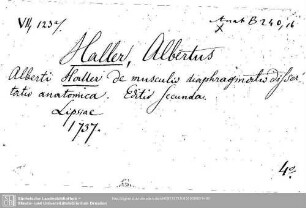 VII, 1237.
Anat B 240, 16
Haller, Albertus
Alberti Haller de musculis diaphragmatis disser
tatio anatomica. Editio secunda.
Lipsiae
1737.
4°.
Sächsische Landesbibliothek -
Staats- und Universitätsbibliothek Dresden